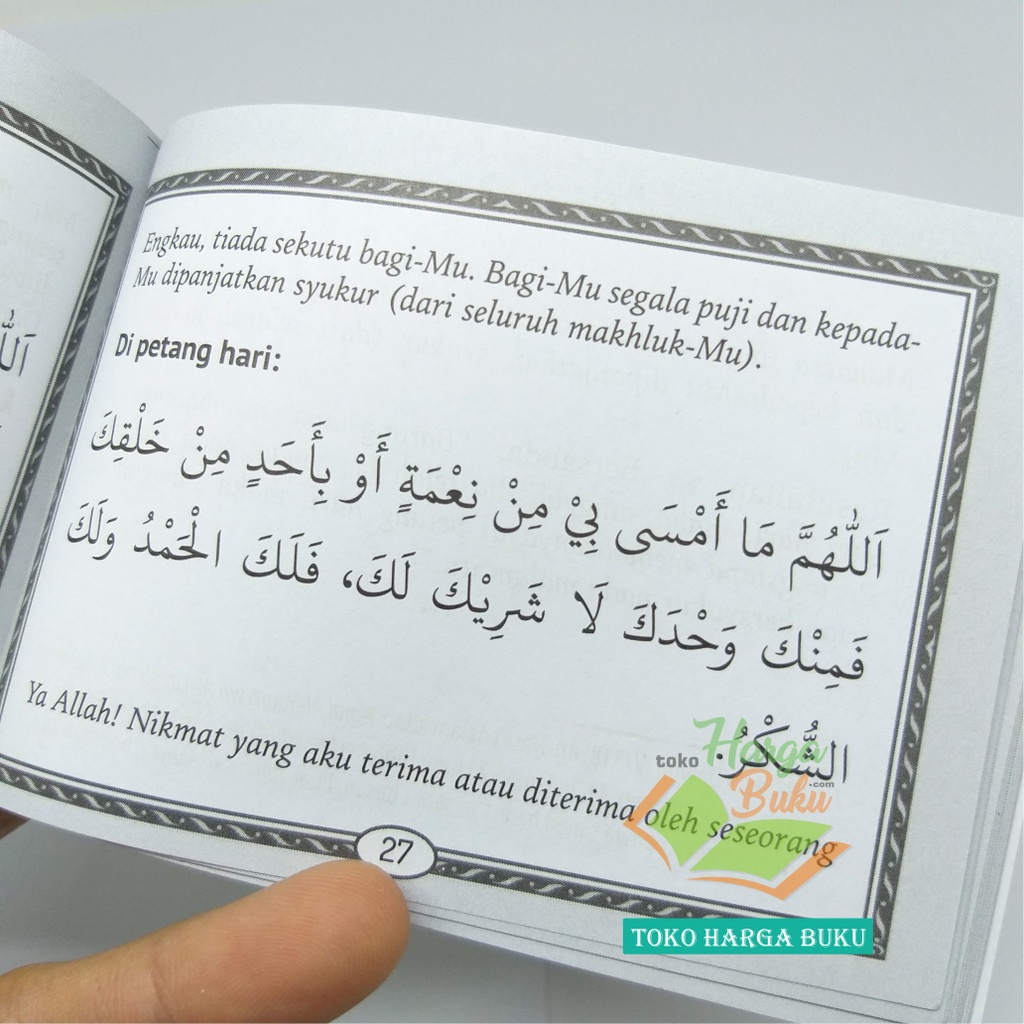 Engkau, tiada sekutu bagi-Mu. Bagi-Mu segala puji dan kepada-
Mu dipanjatkan syukur (dari seluruh makhluk-Mu).
Di petang hari:
اَللّٰهُمَّ مَا أَمْسَى بِيْ مِنْ نِعْمَةٍ أَوْ بِأَحَدٍ مِنْ خَلْقِكَ
فَمِنْكَ وَحْدَكَ لَا شَرِيْكَ لَكَ، فَلَكَ الْحَمْدُ وَلَكَ
الشُّكْرُ.
Ya Allah! Nikmat yang aku terima atau diterima oleh seseorang
27
toko Harga Buku .com
TOKO HARGA BUKU